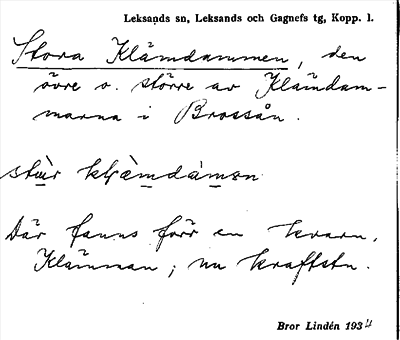 Leksands sn, Leksands och Gagnefs tg, Kopp. l.
Stora Klämdammen, den
övre o. större av Klämdam-
marna i Brossån.
stùr klämdämen
Där fanns förr en kvarn,
Klämman; nu kraftstn.
Bror Lindén 1934